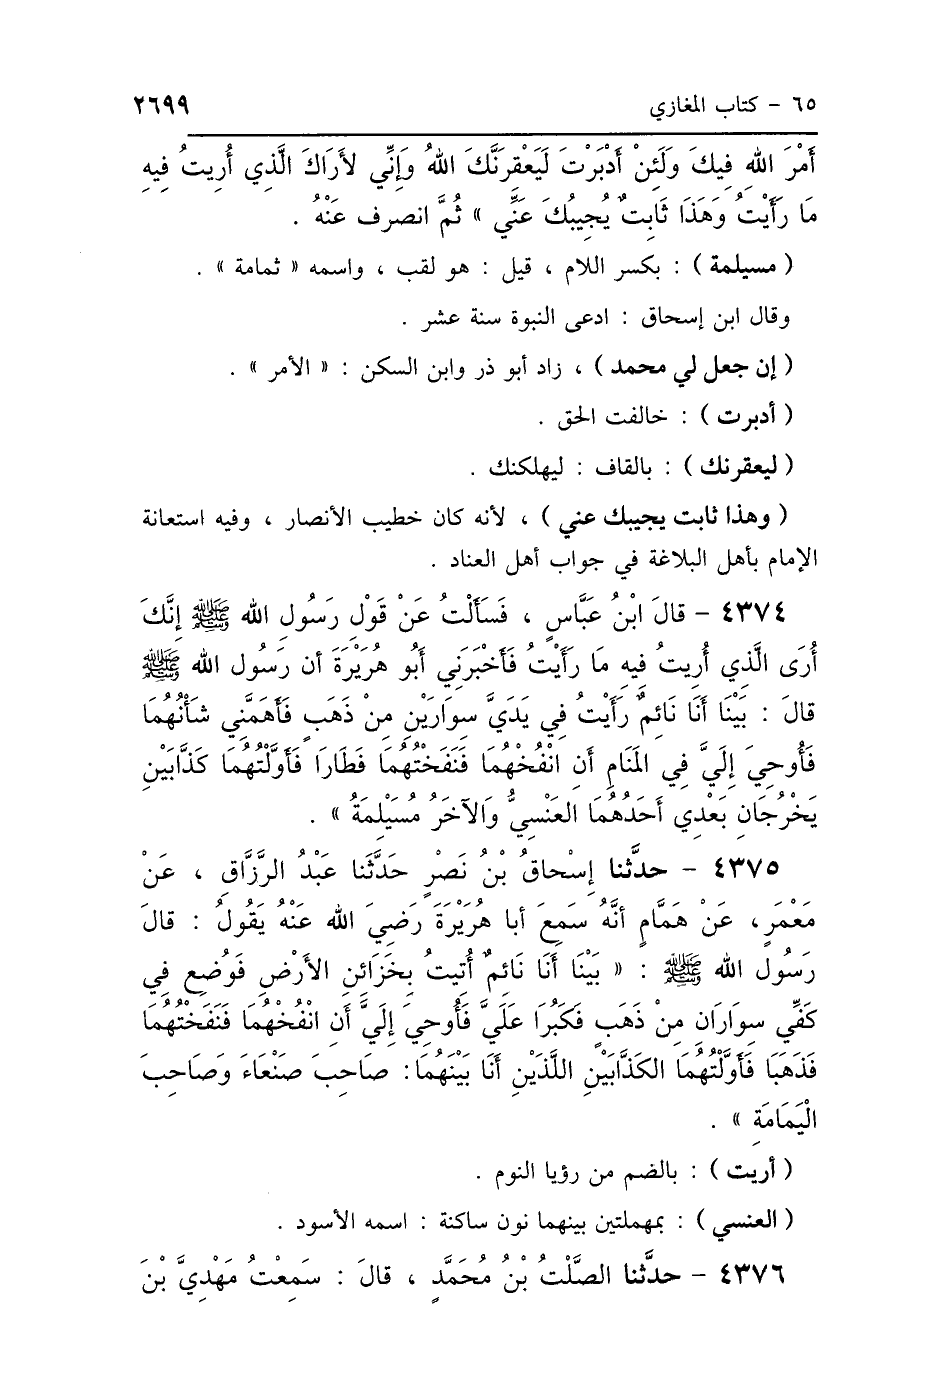 ٦٥ - كتاب المغازي ٢٦٩٩
أَمْرَ الله فِيكَ وَلَئِنْ أَدْبَرْتَ لَيَعْقِرَنَّكَ اللهُ وَإِنِّي لأَرَاكَ الَّذِي أُرِيتُ فِيهِ
مَا رَأَيْتُ وَهَذَا ثَابِتٌ يُجِيبُكَ عَنِّي » ثُمَّ انصرف عَنْهُ .
( مسيلمة ) : بكسر اللام ، قيل : هو لقب ، واسمه « ثمامة » .
وقال ابن إسحاق : ادعى النبوة سنة عشر .
( إن جعل لي محمد ) ، زاد أبو ذر وابن السكن : « الأمر » .
( أدبرت ) : خالفت الحق .
( ليعقرنك ) : بالقاف : ليهلكنك .
( وهذا ثابت يجيبك عني ) ، لأنه كان خطيب الأنصار ، وفيه استعانة
الإمام بأهل البلاغة في جواب أهل العناد .
٤٣٧٤ - قالَ ابْنُ عَبَّاسٍ ، فَسَأَلْتُ عَنْ قَوْلِ رَسُولِ الله ﷺ إِنَّكَ
أُرَى الَّذِي أُرِيتُ فِيهِ مَا رَأَيْتُ فَأَخْبَرَنِي أَبُو هُرَيْرَةَ أن رَسُولَ الله ﷺ
قالَ : بَيْنَا أَنَا نَائِمٌ رَأَيْتُ فِي يَدَيَّ سِوارَيْنِ مِنْ ذَهَبٍ فَأَهَمَّنِي شَأْنُهُمَا
فَأُوحِيَ إِلَيَّ فِي المَنَامِ أَنِ انْفُخْهُمَا فَنَفَخْتُهُمَا فَطَارَا فَأَوَّلْتُهُمَا كَذَّابَيْنِ
يَخْرُجَانِ بَعْدِي أَحَدُهُمَا العَنْسِيُّ وَالآخَرُ مُسَيْلِمَةُ » .
٤٣٧٥ - حدَّثنا إِسْحاقُ بْنُ نَصْرٍ حَدَّثَنا عَبْدُ الرَّزَّاقِ ، عَنْ
مَعْمَرٍ، عَنْ هَمَّامٍ أَنَّهُ سَمِعَ أبا هُرَيْرَةَ رَضِيَ الله عَنْهُ يَقُولُ : قالَ
رَسُولِ الله ﷺ : « بَيْنَا أَنَا نَائِمٌ أُتِيتُ بِخَزَائِنِ الأَرْضِ فَوُضِعَ فِي
كَفِّي سِوارَانِ مِنْ ذَهَبٍ فَكَبُرَا عَلَيَّ فَأُوحِيَ إِلَيَّ أَنِ انْفُخْهُمَا فَنَفَخْتُهُمَا
فَذَهَبَا فَأَوَّلْتُهُمَا الكَذَّابَيْنِ اللَّذَيْنِ أَنَا بَيْنَهُمَا: صاحِبَ صَنْعَاءَ وَصَاحِبَ
الْيَمَامَةِ » .
( أريت ) : بالضم من رؤيا النوم .
( العنسي ) : بمهملتين بينهما نون ساكنة : اسمه الأسود .
٤٣٧٦ - حدَّثنا الصَّلْتُ بْنُ مُحَمَّدٍ ، قالَ : سَمِعْتُ مَهْدِيَّ بْنَ